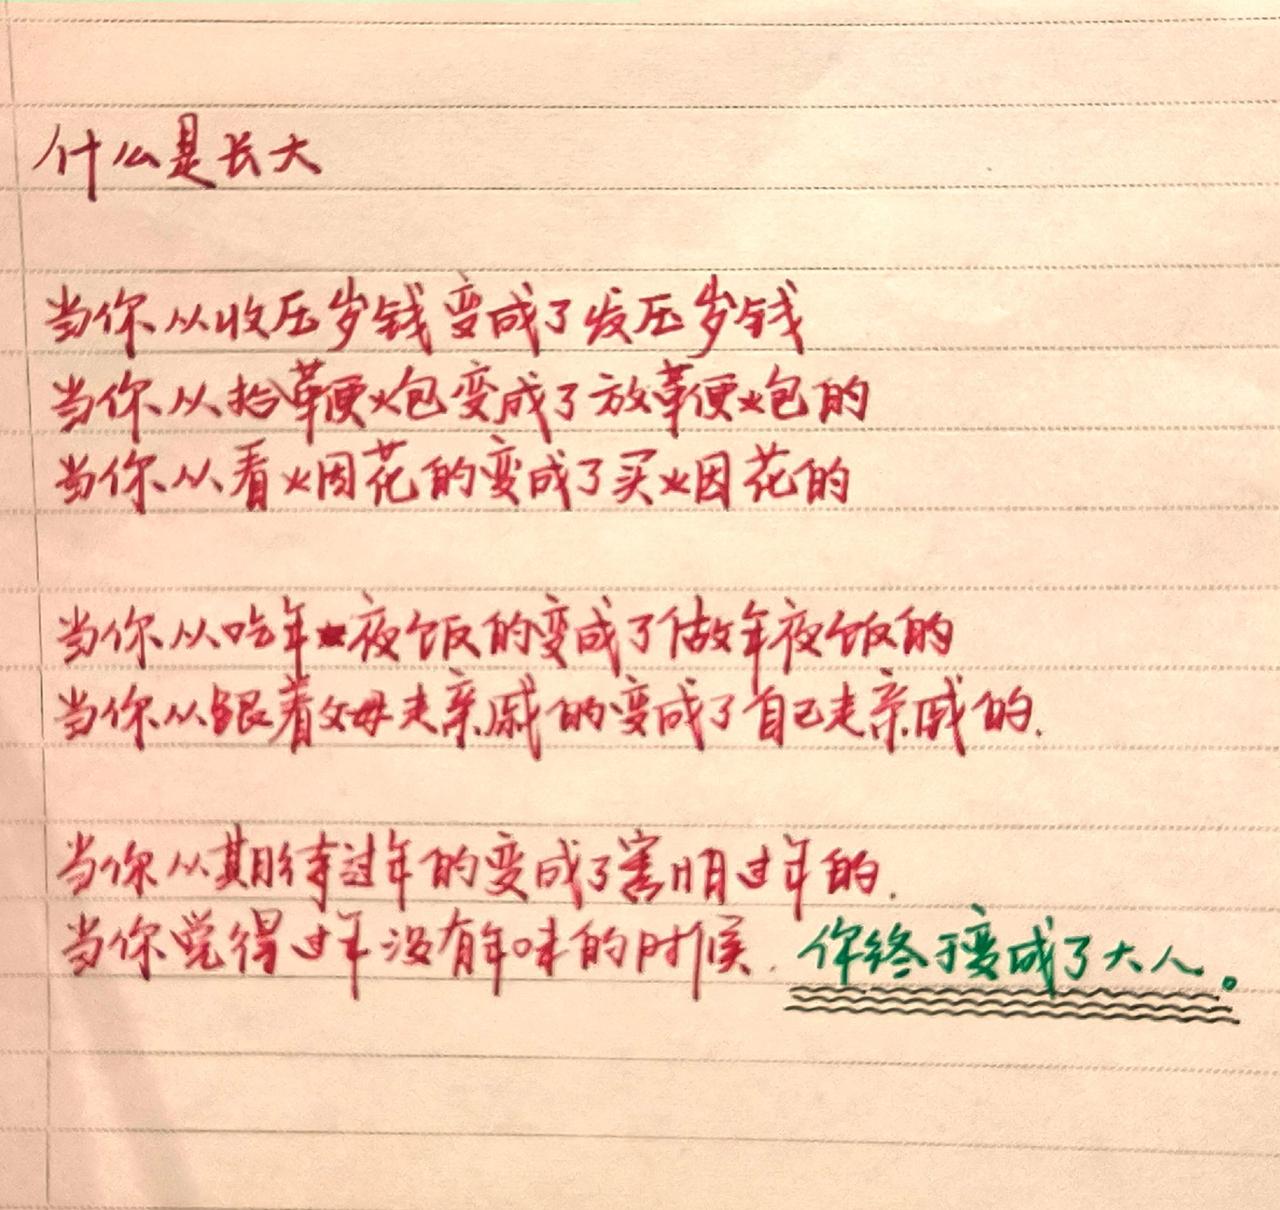 什么是长大
当你从收压岁钱变成了发压岁钱
当你从拾鞭炮变成了放鞭炮的
当你从看烟花的变成了买烟花的
当你从吃年夜饭的变成了做年夜饭的
当你从跟着父母走亲戚的变成了自己走亲戚的.
当你从期待过年的变成了害怕过年的.
当你觉得过年没有年味的时候. 你终于变成了大人。